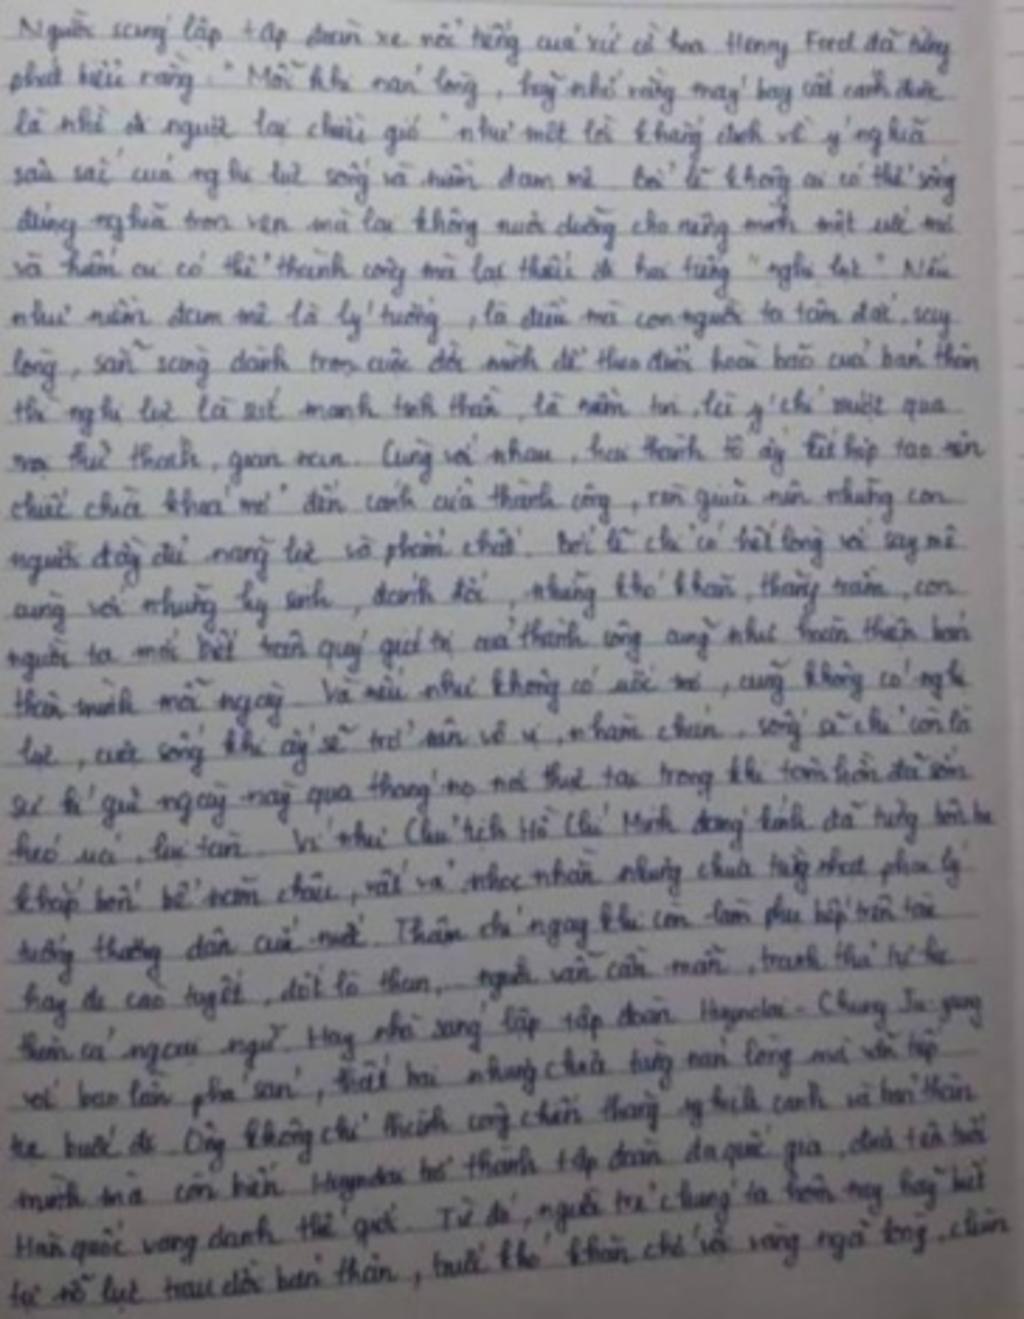 Người sáng lập tập đoàn xe nổi tiếng của xứ cờ hoa Henny Ford đã từng
phát biểu rằng: "Mỗi khi nản lòng, hãy nhớ rằng máy bay cất cánh được
là nhờ đi ngược lại chiều gió" như một lời khẳng định về ý nghĩa
sâu sắc của nghị lực sống và niềm đam mê. Bởi lẽ không ai có thể sống
đúng nghĩa trọn vẹn mà lại không nuôi dưỡng cho riêng mình một ước mơ
và hiếm ai có thể thành công mà lại thiếu đi hai tiếng "nghị lực". Nếu
như niềm đam mê là lý tưởng, là điều mà con người ta tâm đắc, say
lòng, sẵn sàng dành trọn cuộc đời mình để theo đuổi hoài bão của bản thân
thì nghị lực là sức mạnh tinh thần, là niềm tin, là ý chí vượt qua
mọi thử thách, gian nan. Cùng với nhau, hai thành tố ấy kết hợp tạo nên
chiếc chìa khoá mở đến cánh cửa thành công, rèn giũa nên những con
người đầy đủ năng lực và phẩm chất. Bởi lẽ chỉ có hết lòng với say mê
cùng với những hy sinh, đánh đổi, những khó khăn, thăng trầm, con
người ta mới biết trân quý giá trị của thành công cũng như hoàn thiện bản
thân mình mỗi ngày. Và nếu như không có ước mơ, cũng không có nghị
lực, cuộc sống khi ấy sẽ trở nên vô vị, nhàm chán, sống sẽ chỉ còn là
sự kí gửi ngày này qua tháng nọ nơi thực tại trong khi tâm hồn đã sớm
héo úa, lụi tàn. Ví như Chủ tịch Hồ Chí Minh đáng kính đã từng bôn ba
khắp bốn bể năm châu, vất vả nhọc nhằn nhưng chưa từng nhạt phai lý
tưởng thương dân cứu nước. Thậm chí ngay khi còn làm phụ bếp trên tàu
hay đi cào tuyết, đốt lò than, người vẫn cần mẫn, tranh thủ tự học
thêm cả ngoại ngữ. Hay nhà sáng lập tập đoàn Huyndai - Chung Ju-yung
với bao lần phá sản, thất bại nhưng chưa từng nản lòng mà vẫn tiếp
tục bước đi. Ông không chỉ thành công chiến thắng nghịch cảnh và bản thân
mình mà còn biến Huyndai trở thành tập đoàn đa quốc gia, đưa tên tuổi
Hàn quốc vang danh thế giới. Từ đó, người trẻ chúng ta hôm nay hãy biết
tự nỗ lực trau dồi bản thân, trước khó khăn chớ vội vàng ngã lòng, chùn